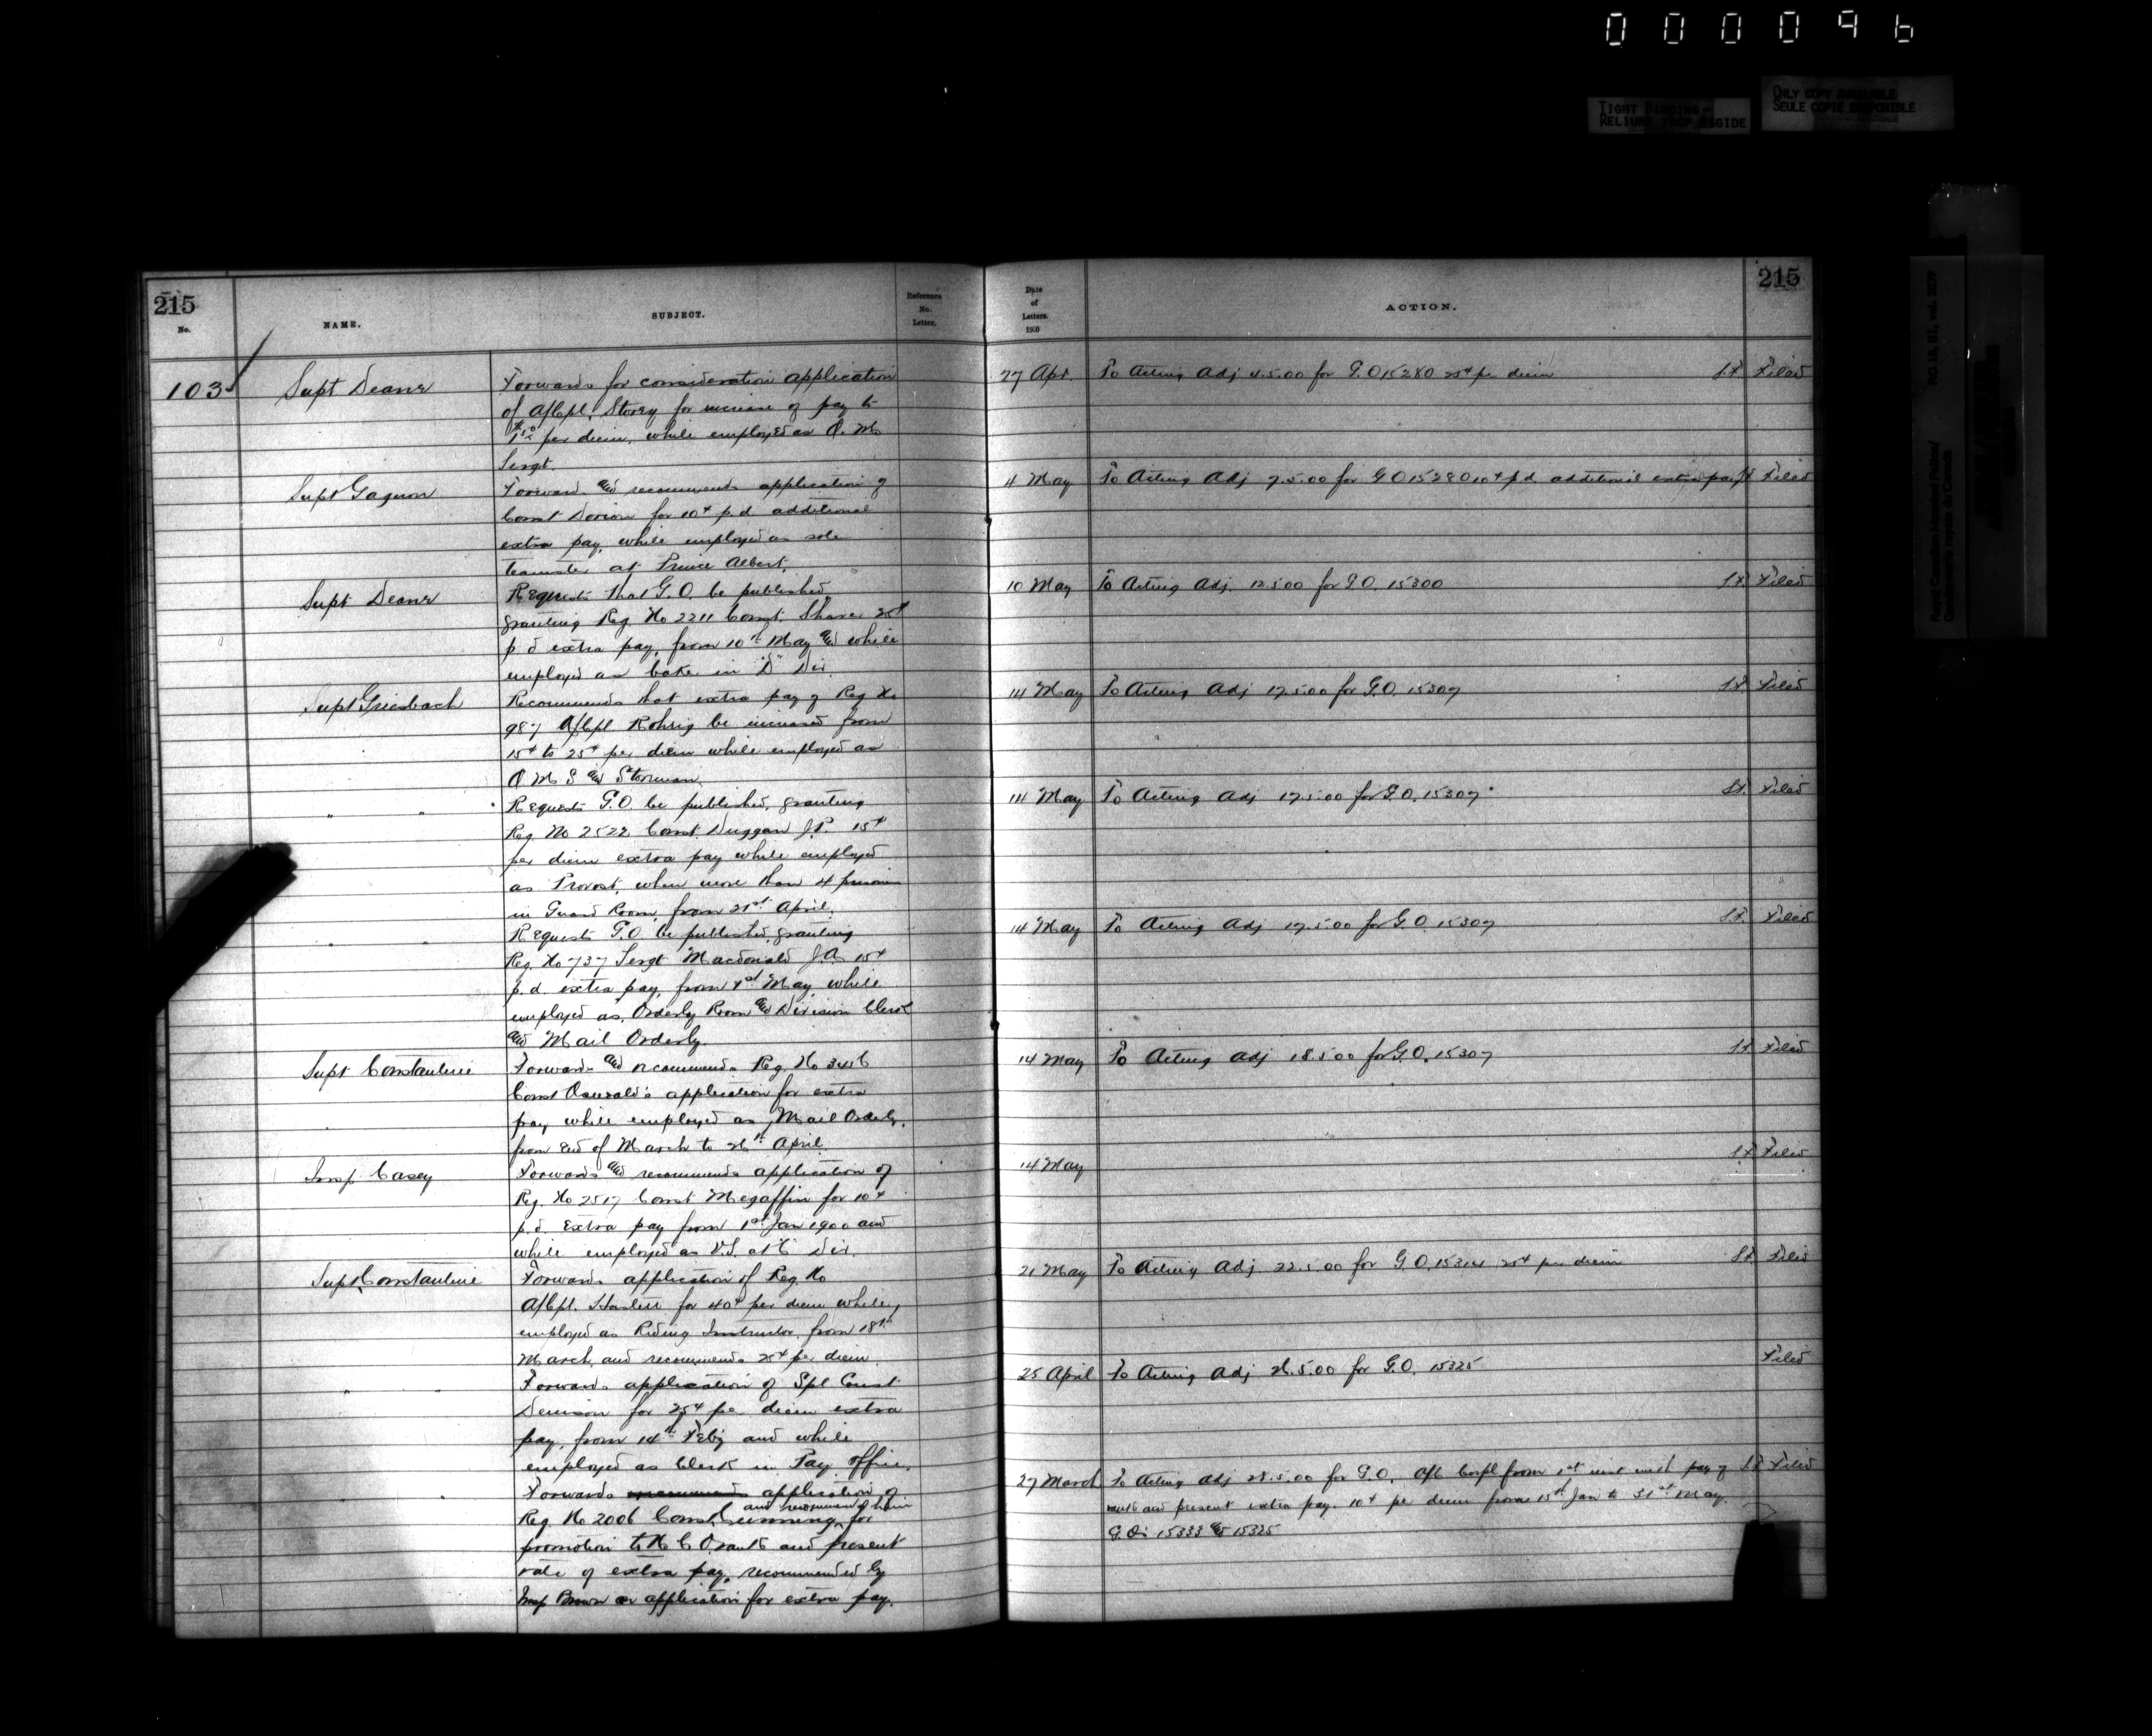 000096
TIGHT BINDING
RELIURE TROP RIGIDE
ONLY COPY AVAILABLE
SEULE COPIE DISPONIBLE
Royal Canadian Mounted Police/
Gendarmerie royale du Canada
RG 18, B1, vol.
215
No.
NAME.
SUBJECT.
Reference
No.
Letter.
Date
of
Letters.
1900
ACTION.
215
103
Supt Deane
Forwards for consideration application
of A/Cpl. Storey for increase of pay to
per diem, while employed as Q. M.
Sergt.
27 Apr.
To Acting Adj 4.5.00 for G.O 15280 25¢ per diem
Filed
Supt Gagnon
Forwards and recommends application of
Const Dorion for 10¢ p.d. additional
extra pay, while employed as sole
teamster at Prince Albert.
4 May
To Acting Adj 7.5.00 for G O 15280 10¢ p.d. additional extra pay
Filed
Supt Deane
Requests that G.O. be published,
granting Reg. No 2211 Const. Share 25¢
p.d extra pay, from 10th May and while
employed as baker in "D" Div.
10 May
To Acting Adj. 12.5.00 for G.O. 15300
Filed
Supt Griesbach
Recommends that extra pay of Reg No
987 A/Cpl Rohrig be increased from
15¢ to 25¢ per diem while employed as
Q M S and Storeman.
14 May
To Acting Adj 17.5.00 for G.O. 15307
Filed
" "
Requests G.O. be published, granting
Reg. No 2522 Const. Duggan J.P. 15¢
per diem extra pay while employed
as Provost, when more than 4 prisoners
in Guard Room, from 21st April.
14 May
To Acting Adj 17.5.00 for G.O. 15307
Filed
" "
Requests G.O. be published, granting
Reg. No 737 Sergt Macdonald J.A. 15¢
p.d. extra pay, from 1st May, while
employed as Orderly Room and Division Clerk
and Mail Orderly.
14 May
To Acting Adj 17.5.00 for G.O. 15307
Filed
Supt Constantine
Forwards and recommends Reg. No
Const Oswald's application for extra
pay while employed as Mail Orderly,
from 2nd of March to 26th April.
14 May
To Acting Adj 18.5.00 for G.O. 15307
Filed
Insp. Casey
Forwards and recommends application of
Reg. No 2517 Const Megaffin for 10¢
p.d. Extra pay from 1st Jan 1900 and
while employed as V.S. Div.
14 May
Filed
Supt Constantine
Forwards application of Reg. No
A/Cpl. for 40¢ per diem while
employed as Riding Instructor, from 18th
March, and recommends 25¢ per diem.
21 May
To Acting Adj. 22.5.00 for G.O. 25¢ per diem
Filed
" "
Forwards application of Spl Const
Denison for 25¢ per diem extra
pay, from 14th Feby and while
employed as Clerk in Pay Office.
25 April
To Acting Adj 26.5.00 for G.O. 15325
Filed
" "
Forwards recommends application of
and recommends him
Reg. No 2006 Const for
promotion to N C O rank and present
rate of extra pay, recommended by
Insp Brown on application for extra pay.
27 March
To Acting Adj 28.5.00 for G.O. A/C Corpl from 1st inst with pay of
rank and present extra pay. 10¢ per diem from 15th Jan to 31st May.
G.O's 15333 and 15325
Filed